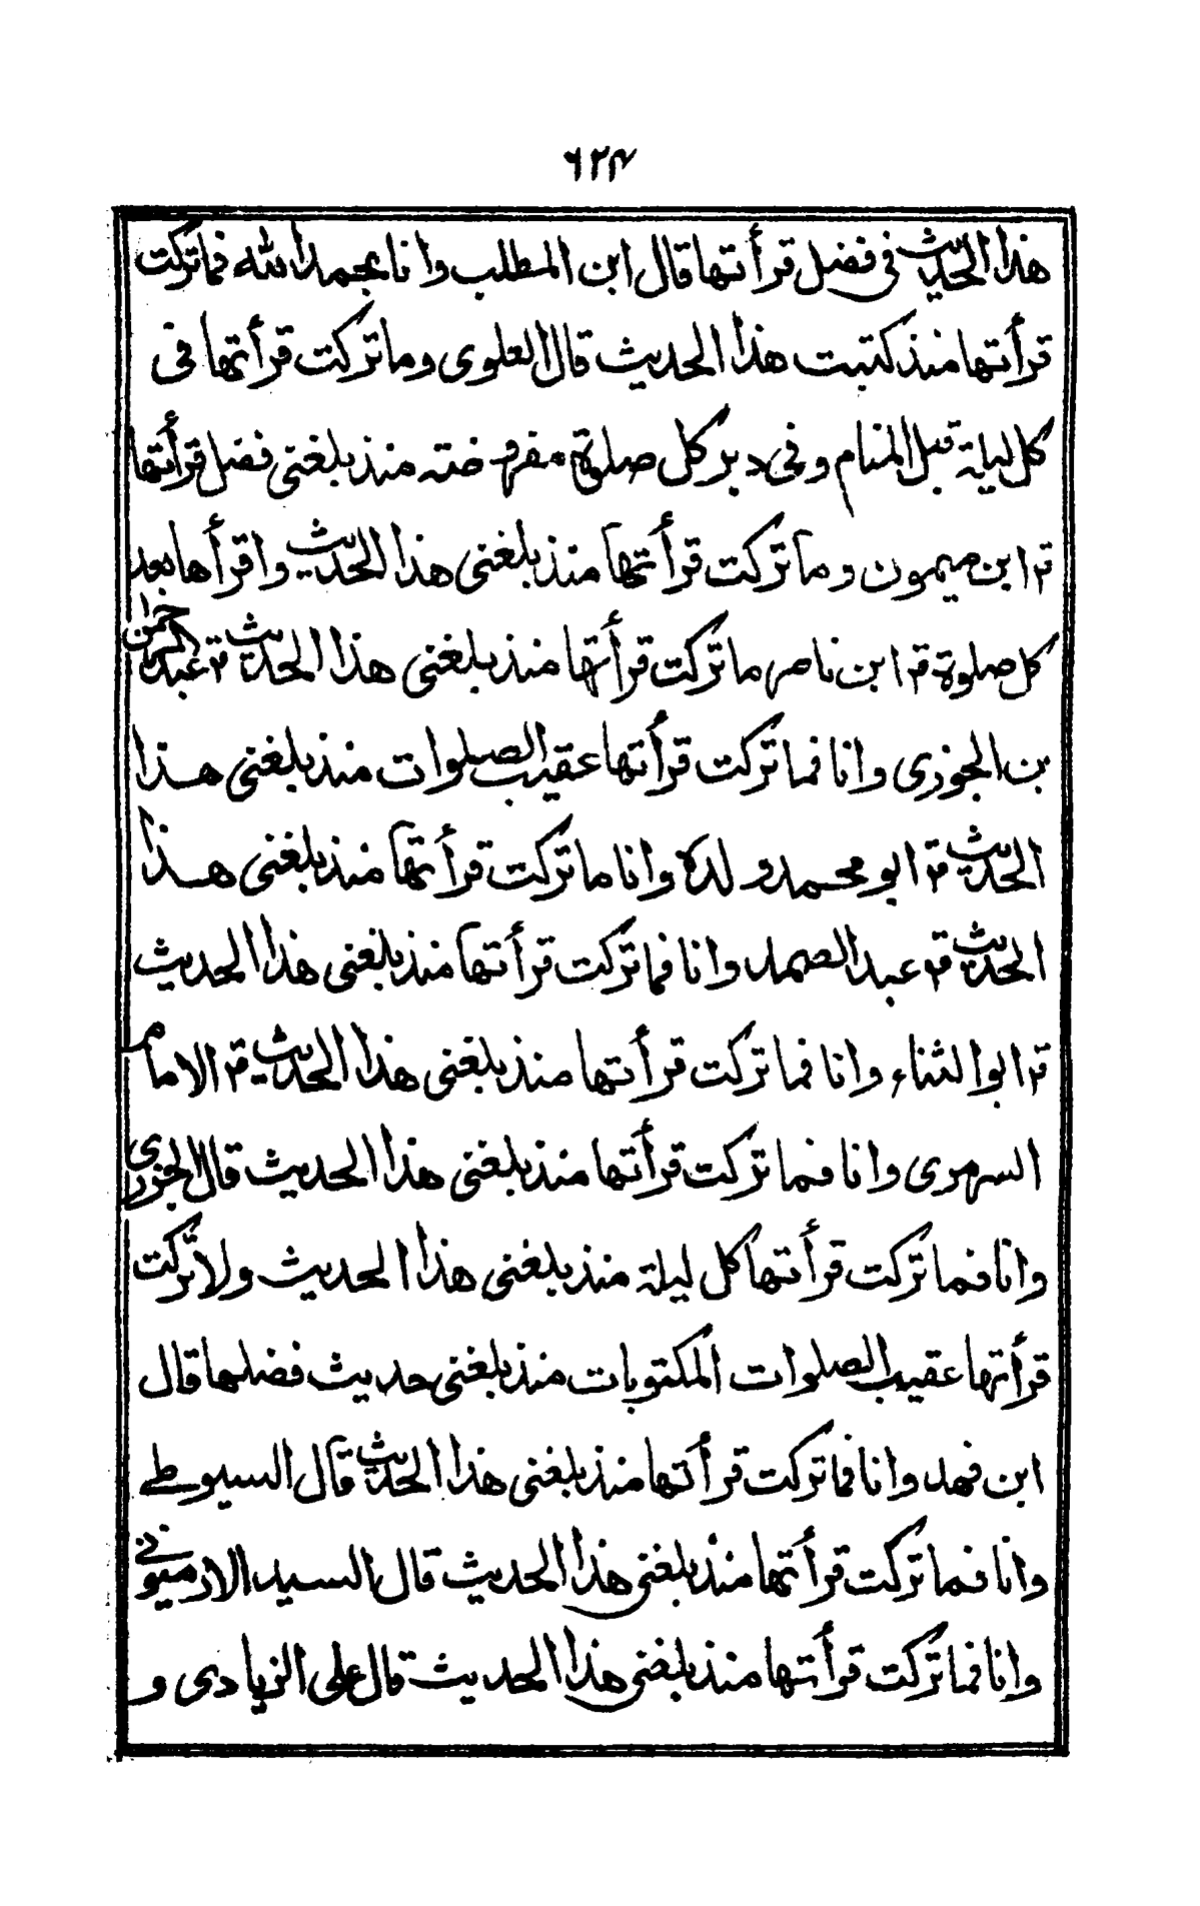 ٦٢٤
هذا الحديث فى فضل قرأتها قال ابن المطلب وانا بحمد الله فما تركت
قرأتها منذ كتبت هذا الحديث قال العلوى وما تركت قرأتها فى
كل ليلة قبل المنام وفى دبر كل صلوة مفروضته منذ بلغنى فضل قرأتها
قہ ابن ميمون وما تركت قرأتها منذ بلغنى هذا الحديث واقرأها بعد
كل صلوة قہ ابن ناصر ما تركت قرأتها منذ بلغنى هذا الحديث قہ عبد الرحمن
بن الجوزى وانا فما تركت قرأتها عقيب الصلوات منذ بلغنى هذا
الحديث قہ ابو محمد ولده وانا ما تركت قرأتها منذ بلغنى هذا
الحديث قہ عبد الصمد وانا فما تركت قرأتها منذ بلغنى هذا الحديث
قہ ابو الثناء وانا فما تركت قرأتها منذ بلغنى هذا الحديث قہ الامام
السرمرى وانا فما تركت قرأتها منذ بلغنى هذا الحديث قال الجزرى
وانا فما تركت قرأتها كل ليلة منذ بلغنى هذا الحديث ولا تركت
قرأتها عقيب الصلوات المكتوبات منذ بلغنى حديث فضلها قال
ابن فهد وانا فما تركت قرأتها منذ بلغنى هذا الحديث قال السيوطے
وانا فما تركت قرأتها منذ بلغنى هذا الحديث قال السيد الارميونى
وانا فما تركت قرأتها منذ بلغنى هذا الحديث قال على الزيادى و